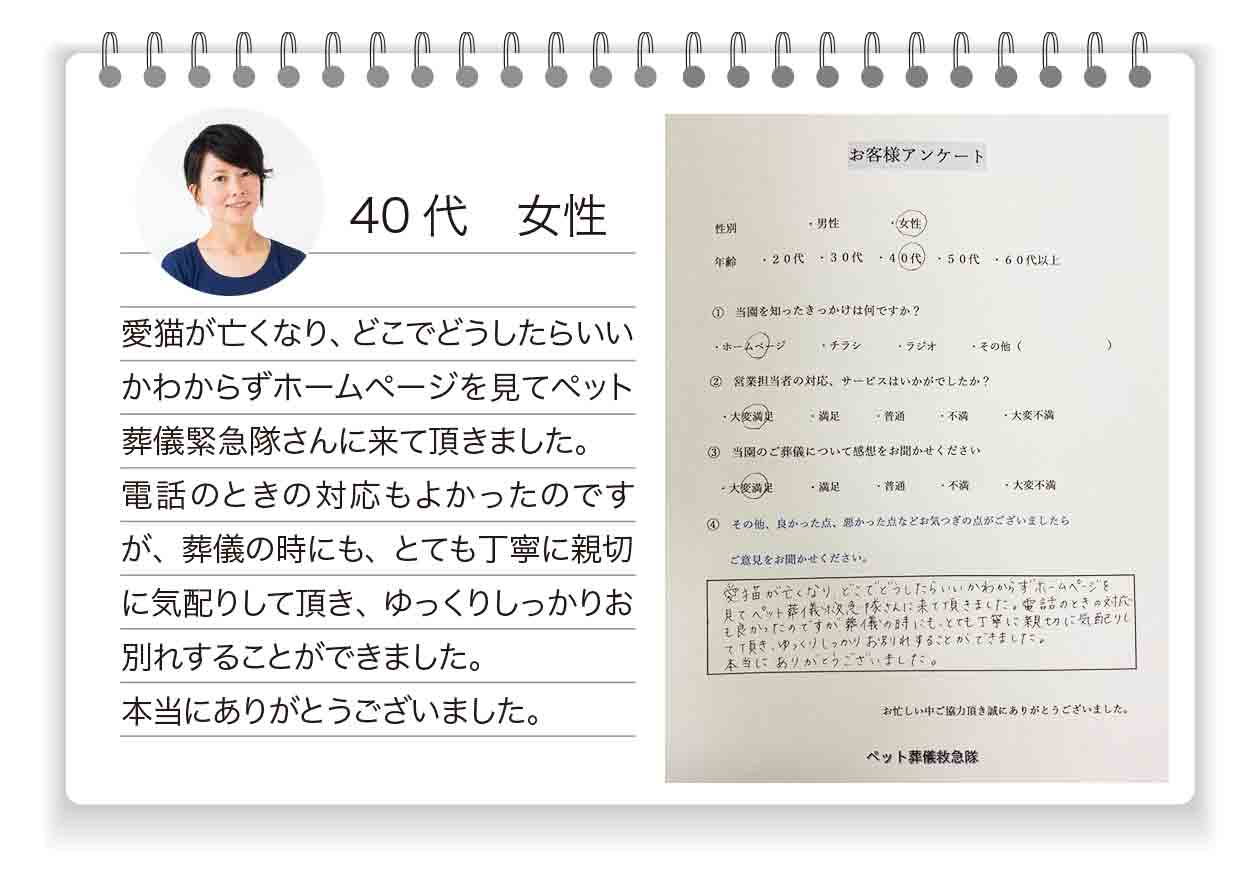 40代 女性
愛猫が亡くなり、どこでどうしたらいい
かわからずホームページを見てペット
葬儀緊急隊さんに来て頂きました。
電話のときの対応もよかったのです
が、葬儀の時にも、とても丁寧に親切
に気配りして頂き、ゆっくりしっかりお
別れすることができました。
本当にありがとうございました。
お客様アンケート
性別 ・男性 ・女性
年齢 ・20代 ・30代 ・40代 ・50代 ・60代以上
① 当園を知ったきっかけは何ですか？
・ホームページ ・チラシ ・ラジオ ・その他（ ）
② 営業担当者の対応、サービスはいかがでしたか？
・大変満足 ・満足 ・普通 ・不満 ・大変不満
③ 当園のご葬儀について感想をお聞かせください
・大変満足 ・満足 ・普通 ・不満 ・大変不満
④ その他、良かった点、悪かった点などお気つぎの点がございましたら
ご意見をお聞かせください。
愛猫が亡くなり、どこでどうしたらいいかわからずホームページを
見てペット葬儀救急隊さんに来て頂きました。電話のときの対応
も良かったのですが葬儀の時にも、とても丁寧に親切に気配りし
て頂き、ゆっくりしっかりお別れすることができました。
本当にありがとうございました。
お忙しい中ご協力頂き誠にありがとうございました。
ペット葬儀救急隊